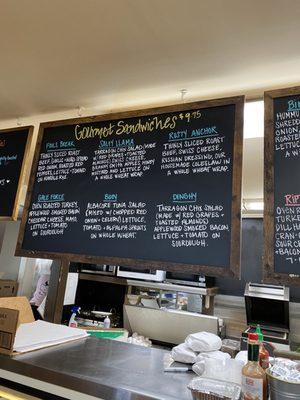 Gourmet Sandwiches $9.75
FOUL BREAK
THINLY SLICED ROAST
BEEF, GARLIC + HERB SPREAD
RED ONION, ROASTED RED
PEPPERS, LETTUCE + TOMATO
ON WHOLE WHEAT.
SALTY LLAMA
TARRAGON CHX SALAD (MADE
W/ RED GRAPES + TOASTED
ALMONDS), SWISS CHEESE,
GRANNY SMITH APPLE, HONEY
MUSTARD AND LETTUCE ON
A WHOLE WHEAT WRAP.
RUSTY ANCHOR
THINLY SLICED ROAST
BEEF, SWISS CHEESE,
RUSSIAN DRESSING, OUR
HOMEMADE COLESLAW IN
A WHOLE WHEAT WRAP.
GALE FORCE
OVEN ROASTED TURKEY,
APPLEWOOD SMOKED BACON
CHEDDAR CHEESE, MAYO,
LETTUCE + TOMATO ON
SOURDOUGH.
BUOY
ALBACORE TUNA SALAD
(MIXED W/ CHOPPED RED
ONION)
LETTUCE, TOMATO
+ ALFALFA SPROUTS ON
WHOLE WHEAT.
DINGHY
TARRAGON CHX SALAD
(MADE W/ RED GRAPES +
TOASTED ALMONDS)
APPLEWOOD SMOKED BACON,
LETTUCE + TOMATO ON
SOURDOUGH.